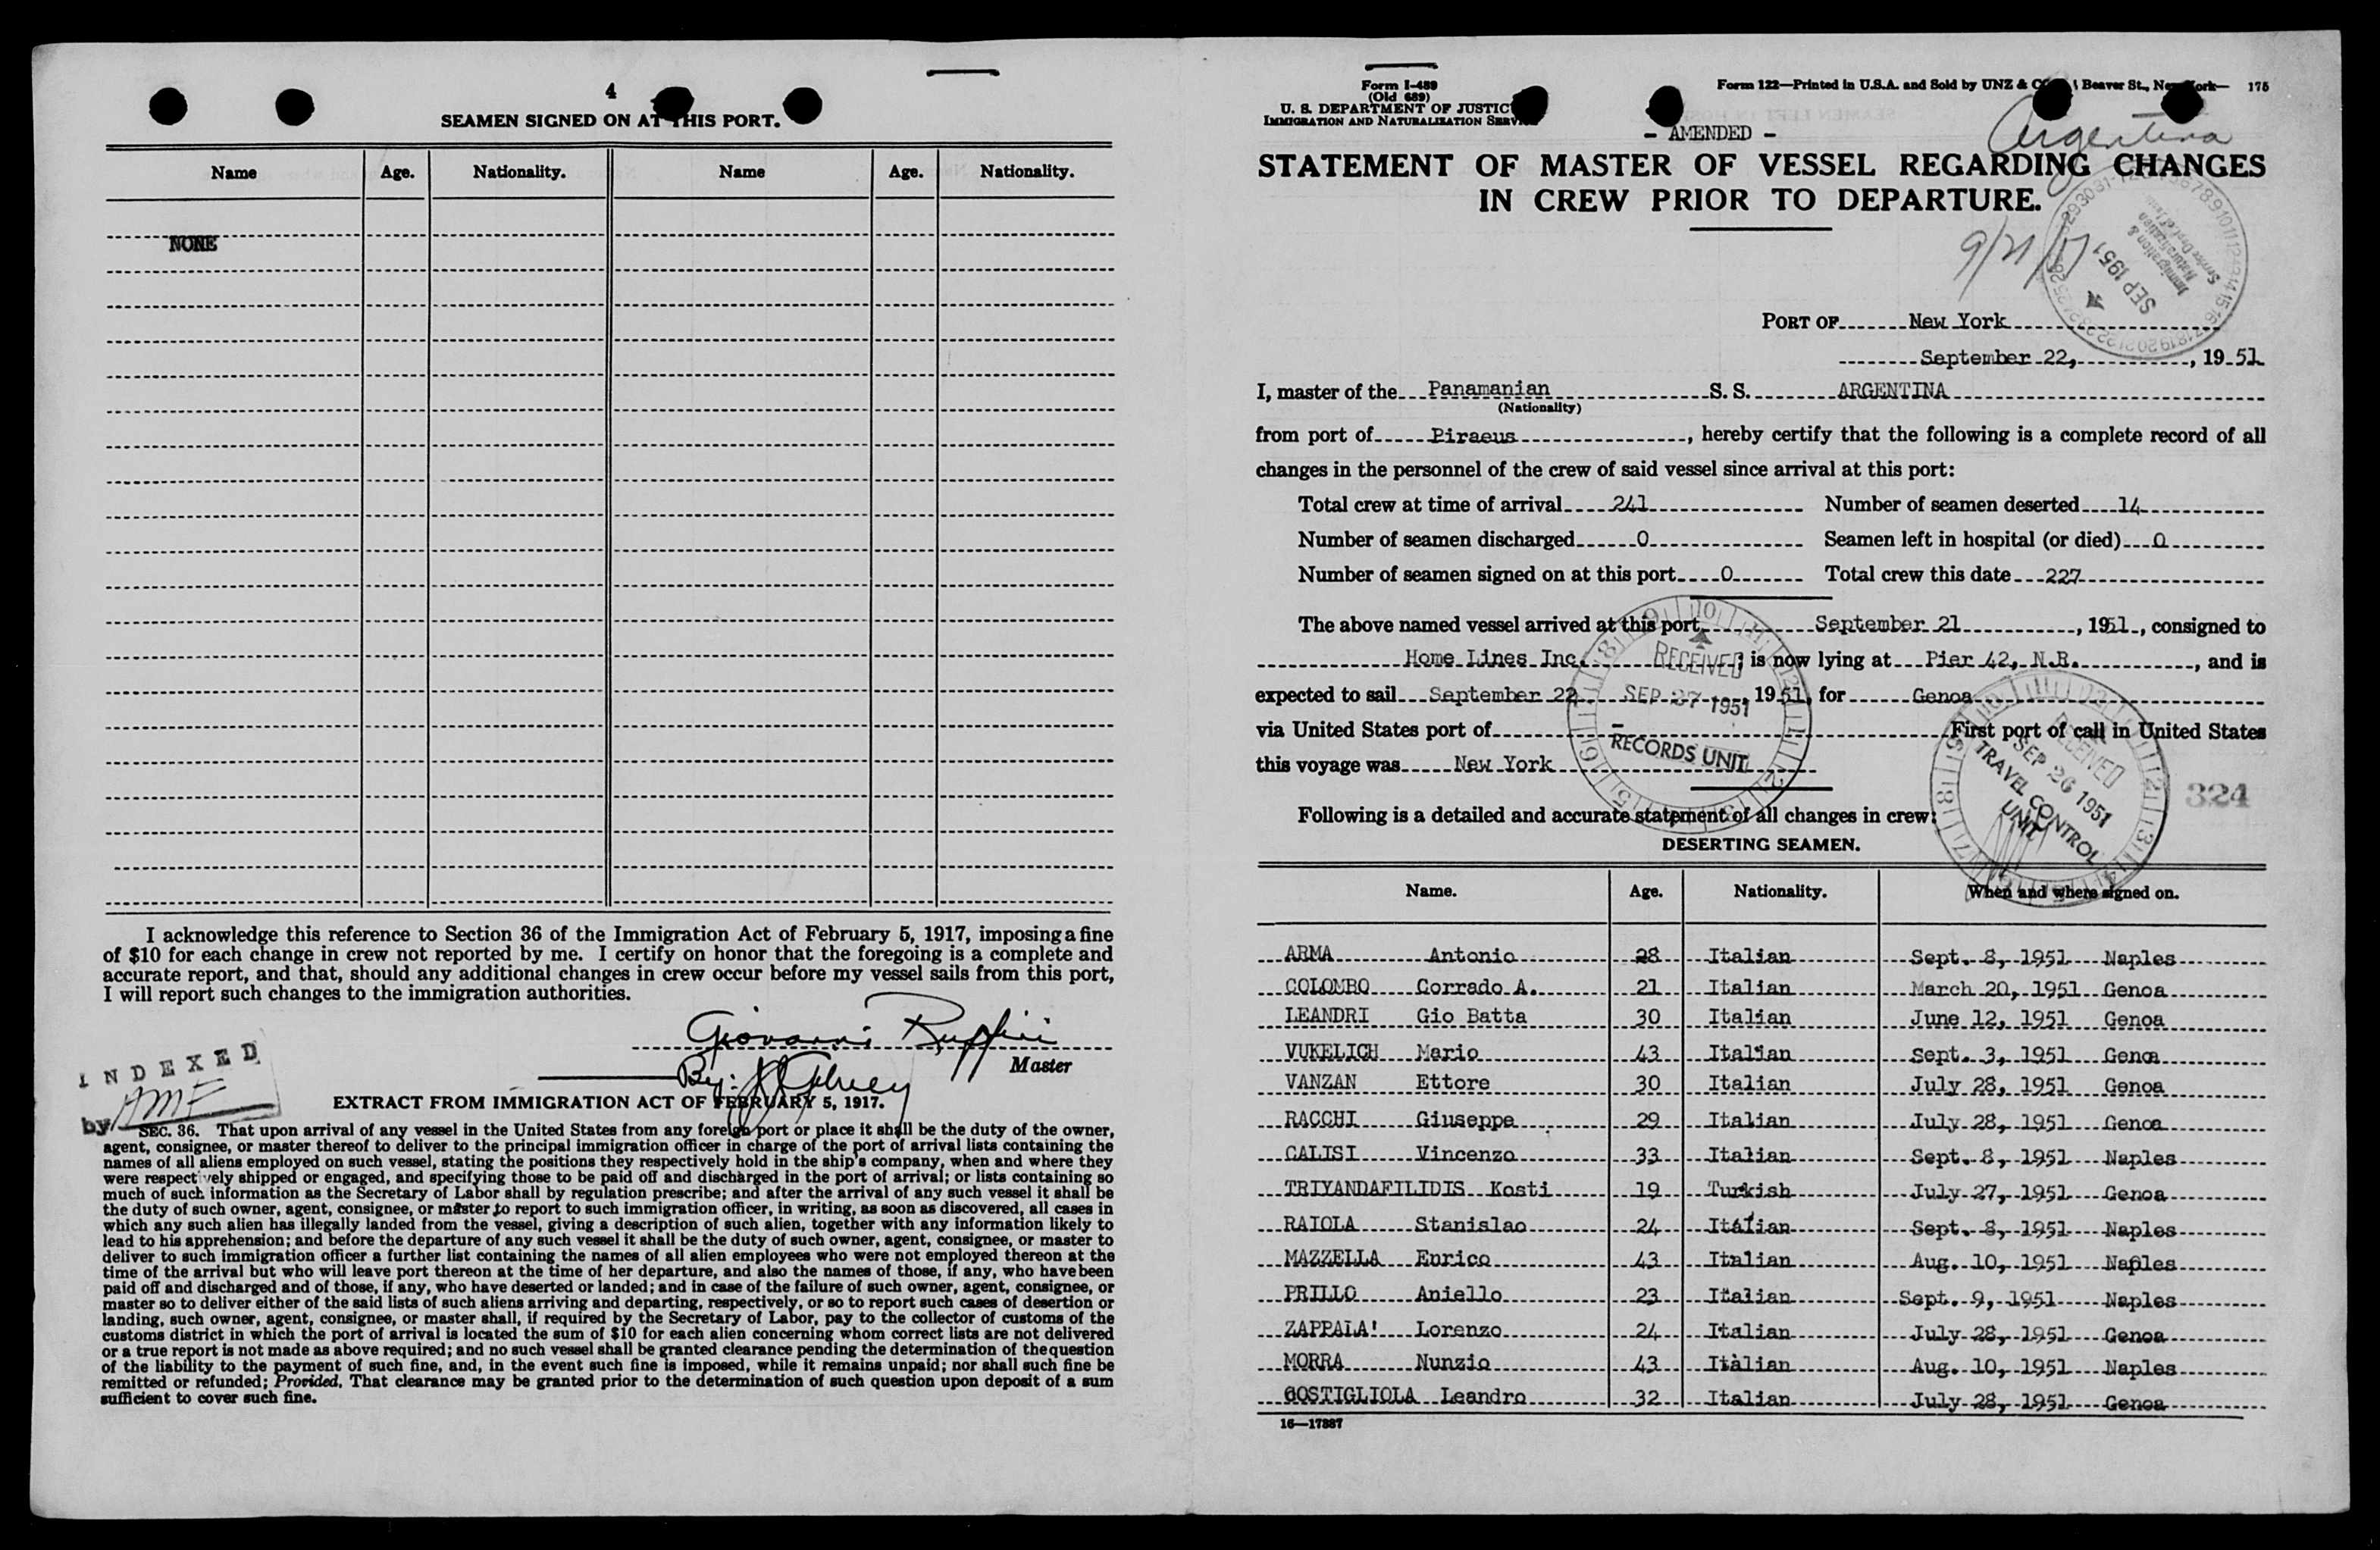 4
SEAMEN SIGNED ON AT THIS PORT.
Name Age. Nationality. Name Age. Nationality.
NONE
I acknowledge this reference to Section 36 of the Immigration Act of February 5, 1917, imposing a fine
of $10 for each change in crew not reported by me. I certify on honor that the foregoing is a complete and
accurate report, and that, should any additional changes in crew occur before my vessel sails from this port,
I will report such changes to the immigration authorities.
Giovanni Ruffini
Master
By:
INDEXED
by AMF
EXTRACT FROM IMMIGRATION ACT OF FEBRUARY 5, 1917.
SEC. 36. That upon arrival of any vessel in the United States from any foreign port or place it shall be the duty of the owner,
agent, consignee, or master thereof to deliver to the principal immigration officer in charge of the port of arrival lists containing the
names of all aliens employed on such vessel, stating the positions they respectively hold in the ship's company, when and where they
were respectively shipped or engaged, and specifying those to be paid off and discharged in the port of arrival; or lists containing so
much of such information as the Secretary of Labor shall by regulation prescribe; and after the arrival of any such vessel it shall be
the duty of such owner, agent, consignee, or master to report to such immigration officer, in writing, as soon as discovered, all cases in
which any such alien has illegally landed from the vessel, giving a description of such alien, together with any information likely to
lead to his apprehension; and before the departure of any such vessel it shall be the duty of such owner, agent, consignee, or master to
deliver to such immigration officer a further list containing the names of all alien employees who were not employed thereon at the
time of the arrival but who will leave port thereon at the time of her departure, and also the names of those, if any, who have been
paid off and discharged and of those, if any, who have deserted or landed; and in case of the failure of such owner, agent, consignee, or
master so to deliver either of the said lists of such aliens arriving and departing, respectively, or so to report such cases of desertion or
landing, such owner, agent, consignee, or master shall, if required by the Secretary of Labor, pay to the collector of customs of the
customs district in which the port of arrival is located the sum of $10 for each alien concerning whom correct lists are not delivered
or a true report is not made as above required; and no such vessel shall be granted clearance pending the determination of the question
of the liability to the payment of such fine, and, in the event such fine is imposed, while it remains unpaid; nor shall such fine be
remitted or refunded; Provided, That clearance may be granted prior to the determination of such question upon deposit of a sum
sufficient to cover such fine.
Form I-489
(Old 689)
U. S. DEPARTMENT OF JUSTICE
IMMIGRATION AND NATURALIZATION SERVICE
Form 122—Printed in U.S.A. and Sold by UNZ & Beaver St., New York— 175
- AMENDED -
Argentina
STATEMENT OF MASTER OF VESSEL REGARDING CHANGES
IN CREW PRIOR TO DEPARTURE.
9/21/51
Immigration &
Naturalization
Service Dept of Justice
SEP 1951
PORT OF New York
September 22, , 19 51
I, master of the Panamanian S. S. ARGENTINA
(Nationality)
from port of Piraeus , hereby certify that the following is a complete record of all
changes in the personnel of the crew of said vessel since arrival at this port:
Total crew at time of arrival 241 Number of seamen deserted 14
Number of seamen discharged 0 Seamen left in hospital (or died) 0
Number of seamen signed on at this port 0 Total crew this date 227
The above named vessel arrived at this port, September 21 , 1951 , consigned to
Home Lines Inc. ; is now lying at Pier 42, N.R. , and is
expected to sail September 22 , 1951, for Genoa
via United States port of First port of call in United States
this voyage was New York
RECEIVED
SEP 27 1951
RECORDS UNIT
RECEIVED
SEP 26 1951
TRAVEL CONTROL
UNIT
324
Following is a detailed and accurate statement of all changes in crew:
DESERTING SEAMEN.
Name. Age. Nationality. When and where signed on.
ARMA Antonio 28 Italian Sept. 8, 1951 Naples
COLOMBO Corrado A. 21 Italian March 20, 1951 Genoa
LEANDRI Gio Batta 30 Italian June 12, 1951 Genoa
VUKELICH Mario 43 Italian Sept. 3, 1951 Genoa
VANZAN Ettore 30 Italian July 28, 1951 Genoa
RACCHI Giuseppe 29 Italian July 28, 1951 Genoa
CALISI Vincenzo 33 Italian Sept. 8, 1951 Naples
TRIYANDAFILIDIS Kosti 19 Turkish July 27, 1951 Genoa
RAIOLA Stanislao 24 Italian Sept. 8, 1951 Naples
MAZZELLA Enrico 43 Italian Aug. 10, 1951 Naples
PRILLO Aniello 23 Italian Sept. 9, 1951 Naples
ZAPPALA' Lorenzo 24 Italian July 28, 1951 Genoa
MORRA Nunzio 43 Italian Aug. 10, 1951 Naples
COSTIGLIOLA Leandro 32 Italian July 28, 1951 Genoa
16—17887